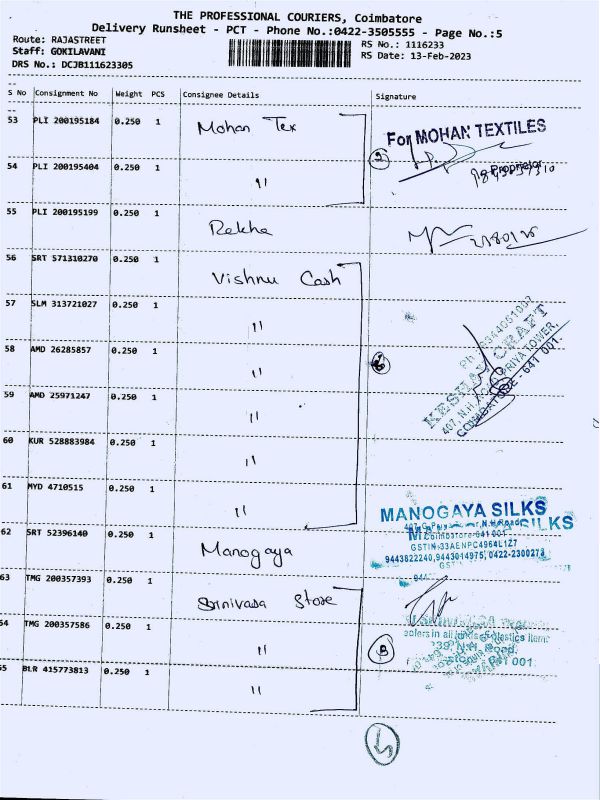 THE PROFESSIONAL COURIERS, Coimbatore
Delivery Runsheet - PCT - Phone No.:0422-3505555 - Page No.:5
Route: RAJASTREET
RS No.: 1116233
Staff: GOKILAVANI
RS Date: 13-Feb-2023
DRS No.: DCJB111623305
S No Consignment No Weight PCS Consignee Details Signature
53 PLI 200195184 0.250 1 Mohan Tex
For MOHAN TEXTILES
Proprietor
54 PLI 200195404 0.250 1 "
55 PLI 200195199 0.250 1 Rekha
56 SRT 571310270 0.250 1 Vishnu Cash
57 SLM 313721027 0.250 1 "
58 AMD 26285857 0.250 1 "
59 AMD 25971247 0.250 1 "
KESHAV CRAFT
COIMBATORE - 641 001.
60 KUR 528883984 0.250 1 "
61 MYD 4710515 0.250 1 "
MANOGAYA SILKS
62 SRT 52396140 0.250 1 Manogaya
Coimbatore-641 001
GSTIN:33AENPC4964L1Z7
9443822240,9443014975, 0422-2300273
63 TMG 200357393 0.250 1 Srinivasa Store
64 TMG 200357586 0.250 1 "
N.H. Road,
641 001
BLR 415773813 0.250 1 "